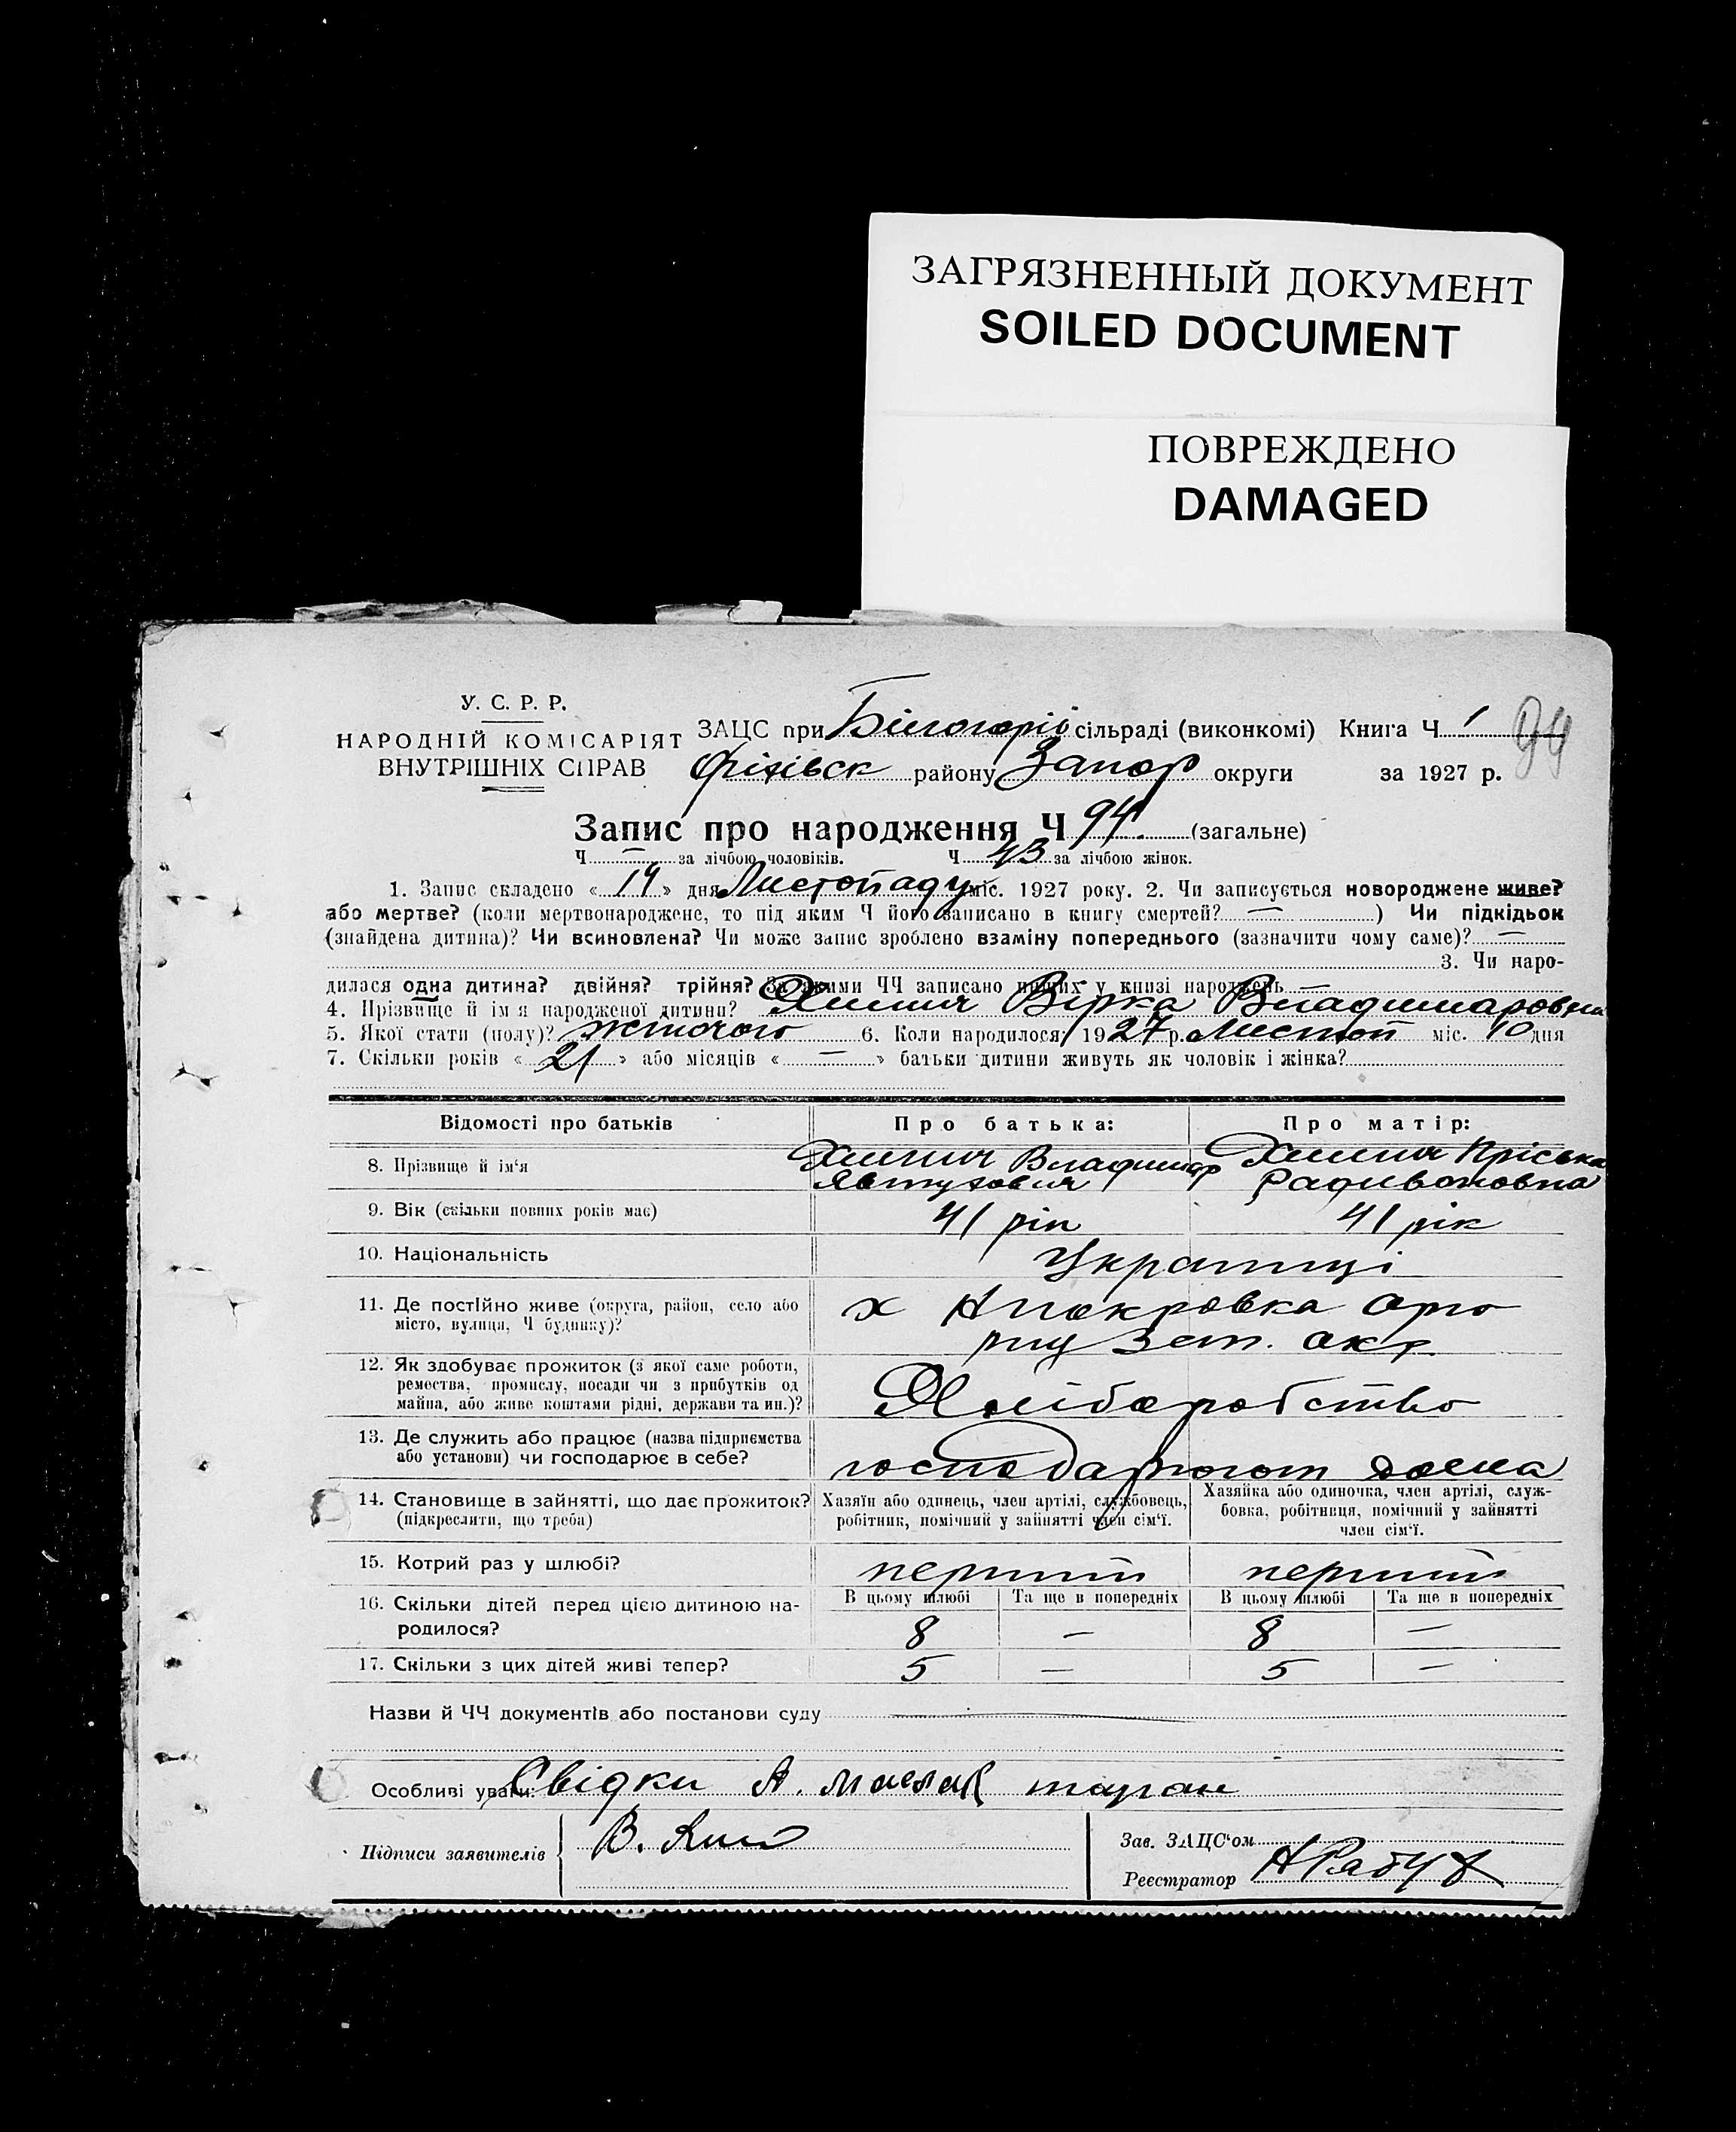 ЗАГРЯЗНЕННЫЙ ДОКУМЕНТ
SOILED DOCUMENT
ПОВРЕЖДЕНО
DAMAGED
У. С. Р. Р.
НАРОДНІЙ КОМІСАРІЯТ
ВНУТРІШНІХ СПРАВ
ЗАЦС при сільраді (виконкомі) Книга Ч. 1 94
району Запор округи за 1927 р.
Запис про народження Ч 94. (загальне)
Ч. — за лічбою чоловіків. Ч. 43 за лічбою жінок.
1. Запис складено « 14 » дня Листопаду міс. 1927 року. 2. Чи записується новороджене живе?
або мертве? (коли мертвонароджене, то під яким Ч його записано в книгу смертей? — ) Чи підкідьок
(знайдена дитина)? Чи всиновлена? Чи може запис зроблено взаміну попереднього (зазначити чому саме)? —
3. Чи наро-
дилася одна дитина? двійня? трійня? За якими ЧЧ записано инших у книзі народжень
4. Прізвище й ім'я народженої дитини? Вірка Владимировна
5. Якої стати (полу)? жіночого 6. Коли народилося? 1927 р. Листоп міс. 10 дня
7. Скільки років « 21 » або місяців « — » батьки дитини живуть як чоловік і жінка?
Відомості про батьків Про батька: Про матір:
8. Прізвище й ім'я Владимир Пріська
Явтухович Радивоновна
9. Вік (скільки повних років має) 41 рік 41 рік
10. Національність Українці
11. Де постійно живе (округа, район, село або
місто, вулиця, Ч будинку)? х Покровка
Зап. окр
12. Як здобуває прожиток (з якої саме роботи,
ремества, промислу, посади чи з прибутків од
майна, або живе коштами рідні, держави та ин.)? Хліборобство
13. Де служить або працює (назва підприємства
або установи) чи господарює в себе? господарюют дома
14. Становище в зайнятті, що дає прожиток?
(підкреслити, що треба)
Хазяїн або одинець, член артілі, службовець,
робітник, помічний у зайнятті член сім'ї.
Хазяйка або одиночка, член артілі, служ-
бовка, робітниця, помічний у зайнятті
член сім'ї.
15. Котрий раз у шлюбі? перший перший
16. Скільки дітей перед цією дитиною на-
родилося?
В цьому шлюбі Та ще в попередніх В цьому шлюбі Та ще в попередніх
8 — 8 —
17. Скільки з цих дітей живі тепер? 5 — 5 —
Назви й ЧЧ документів або постанови суду
Особливі уваги: Свідки А.
Підписи заявителів В.
Зав. ЗАЦС'ом
Реєстратор